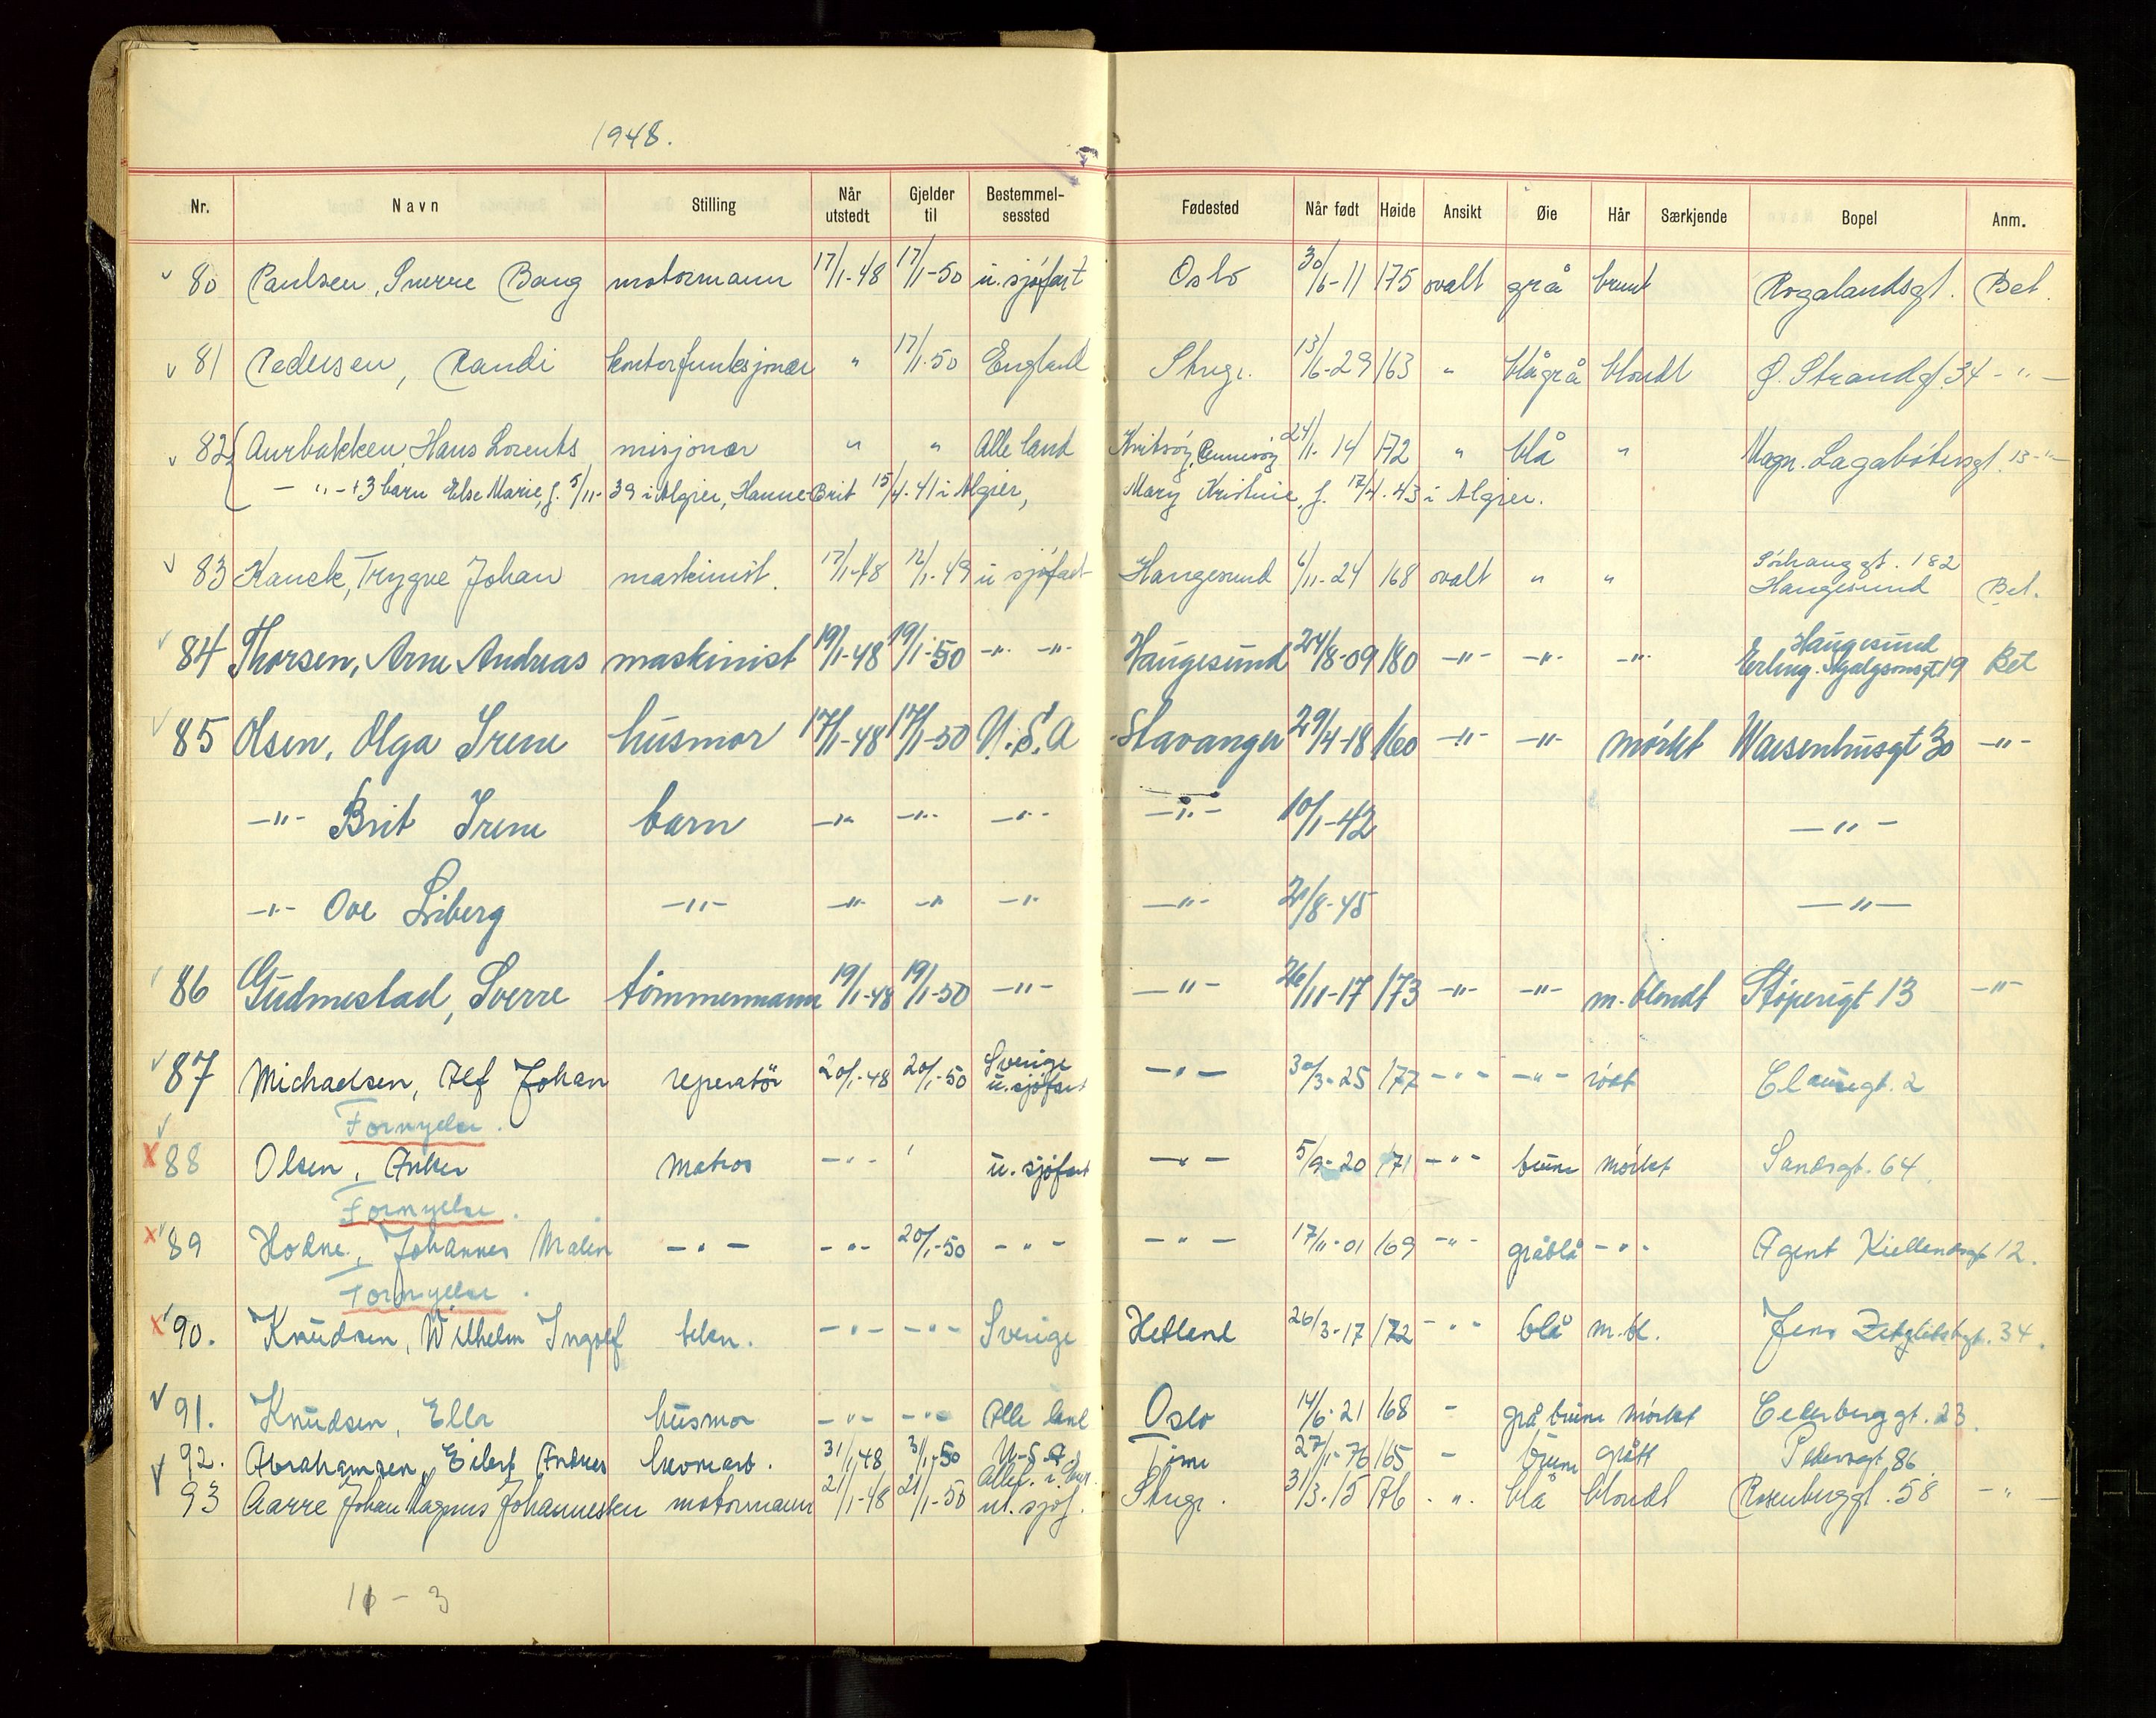 1948.
Nr. Navn Stilling Når utstedt Gjelder til Bestemmelsessted Fødested Når født Høide Ansikt Øie Hår Særkjende Bopel Anm.
80 Paulsen, Sverre Bang motormann 17/1-48 17/1-50 u. sjøfart Oslo 30/6-11 175 ovalt grå brunt Rogalandsgt. Bet.
81 Pedersen, Randi kontorfunksjonær " 17/1-50 England Stvgr. 13/6-29 163 " blågrå blondt Ø. Strandgt. 34 - " -
82 Aurbakken Hans Lorents misjonær " " Alle land Kvitsøy, 24/1-14 172 " blå " Magn. Lagabøtersgt. 13 - " -
- " - + 3 barn Else Marie, f. 5/11-39 i Algier, Hanne-Brit 15/4-41 i Algier, Mary Kristine, f. 17/4-43 i Algier.
83 Kanck, Trygve Johan maskinist. 17/1-48 12/1-49 u sjøfart Haugesund 6/11-24 168 ovalt " " Sørhauggt. 182
Haugesund Bet.
84 Thorsen, Arne Andreas maskinist 19/1-48 19/1-50 -"- -"- Haugesund 24/8-09 180 -"- -"- -"- Haugesund
Erling 19 Bet
85 Olsen, Olga Irene husmor 17/1-48 17/1-50 U.S.A Stavanger 29/4-18 160 -"- -"- mørkt Waisenhusgt 30 -"-
-"- Brit Irene barn -"- -"- -"- -"- 10/1-42 -"-
-"- Ove Liberg -"- -"- -"- -"- -"- 21/8-45 -"-
86 Gudmestad, Sverre tømmermann 19/1-48 19/1-50 -"- -"- 26/11-17 173 -"- -"- m. blondt Støperigt 13 -"-
87 Michaelsen, Alf Johan reperatör 20/1-48 20/1-50 Sverige
u. sjøfart -"- 30/3-25 177 -"- -"- rødt Clausegt. 2
Fornyelse.
X 88 Olsen, Anker Matros -"- ' u. sjøfart -"- 5/9-20 171 -"- brune mørkt Sandsgt. 64.
Fornyelse.
X 89 Hodne, Johannes Malin -"- -"- 20/1-50 -"- -"- 17/11-01 169 -"- gråblå -"- Agent Kiellandsgt 12.
Fornyelse.
X 90. Knudsen, Wilhelm Ingolf tekn. -"- -"- Sverige Hetland 26/3-17 172 -"- blå m.bl. Jens Zetzlitzsgt. 34.
91. Knudsen, Ella husmor -"- -"- Alle land Oslo 14/6-21 168 - grå brune mørkt Cederberggt. 23.
92. Abrahamsen, Eilert Andreas 31/1-48 31/1-50 U-S.A. Time 27/11-76 165 - brune grått Pedersgt 86.
93 Aarre Johan Magnus Johannessen motormann 21/1-48 21/1-50
ut. sjøf. Stvgr. 31/3-15 176 - " . blå blondt Rosenberggt. 58 - " -
11 - 3